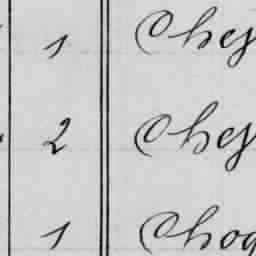 1 Ches
2 Ches
1 Choq